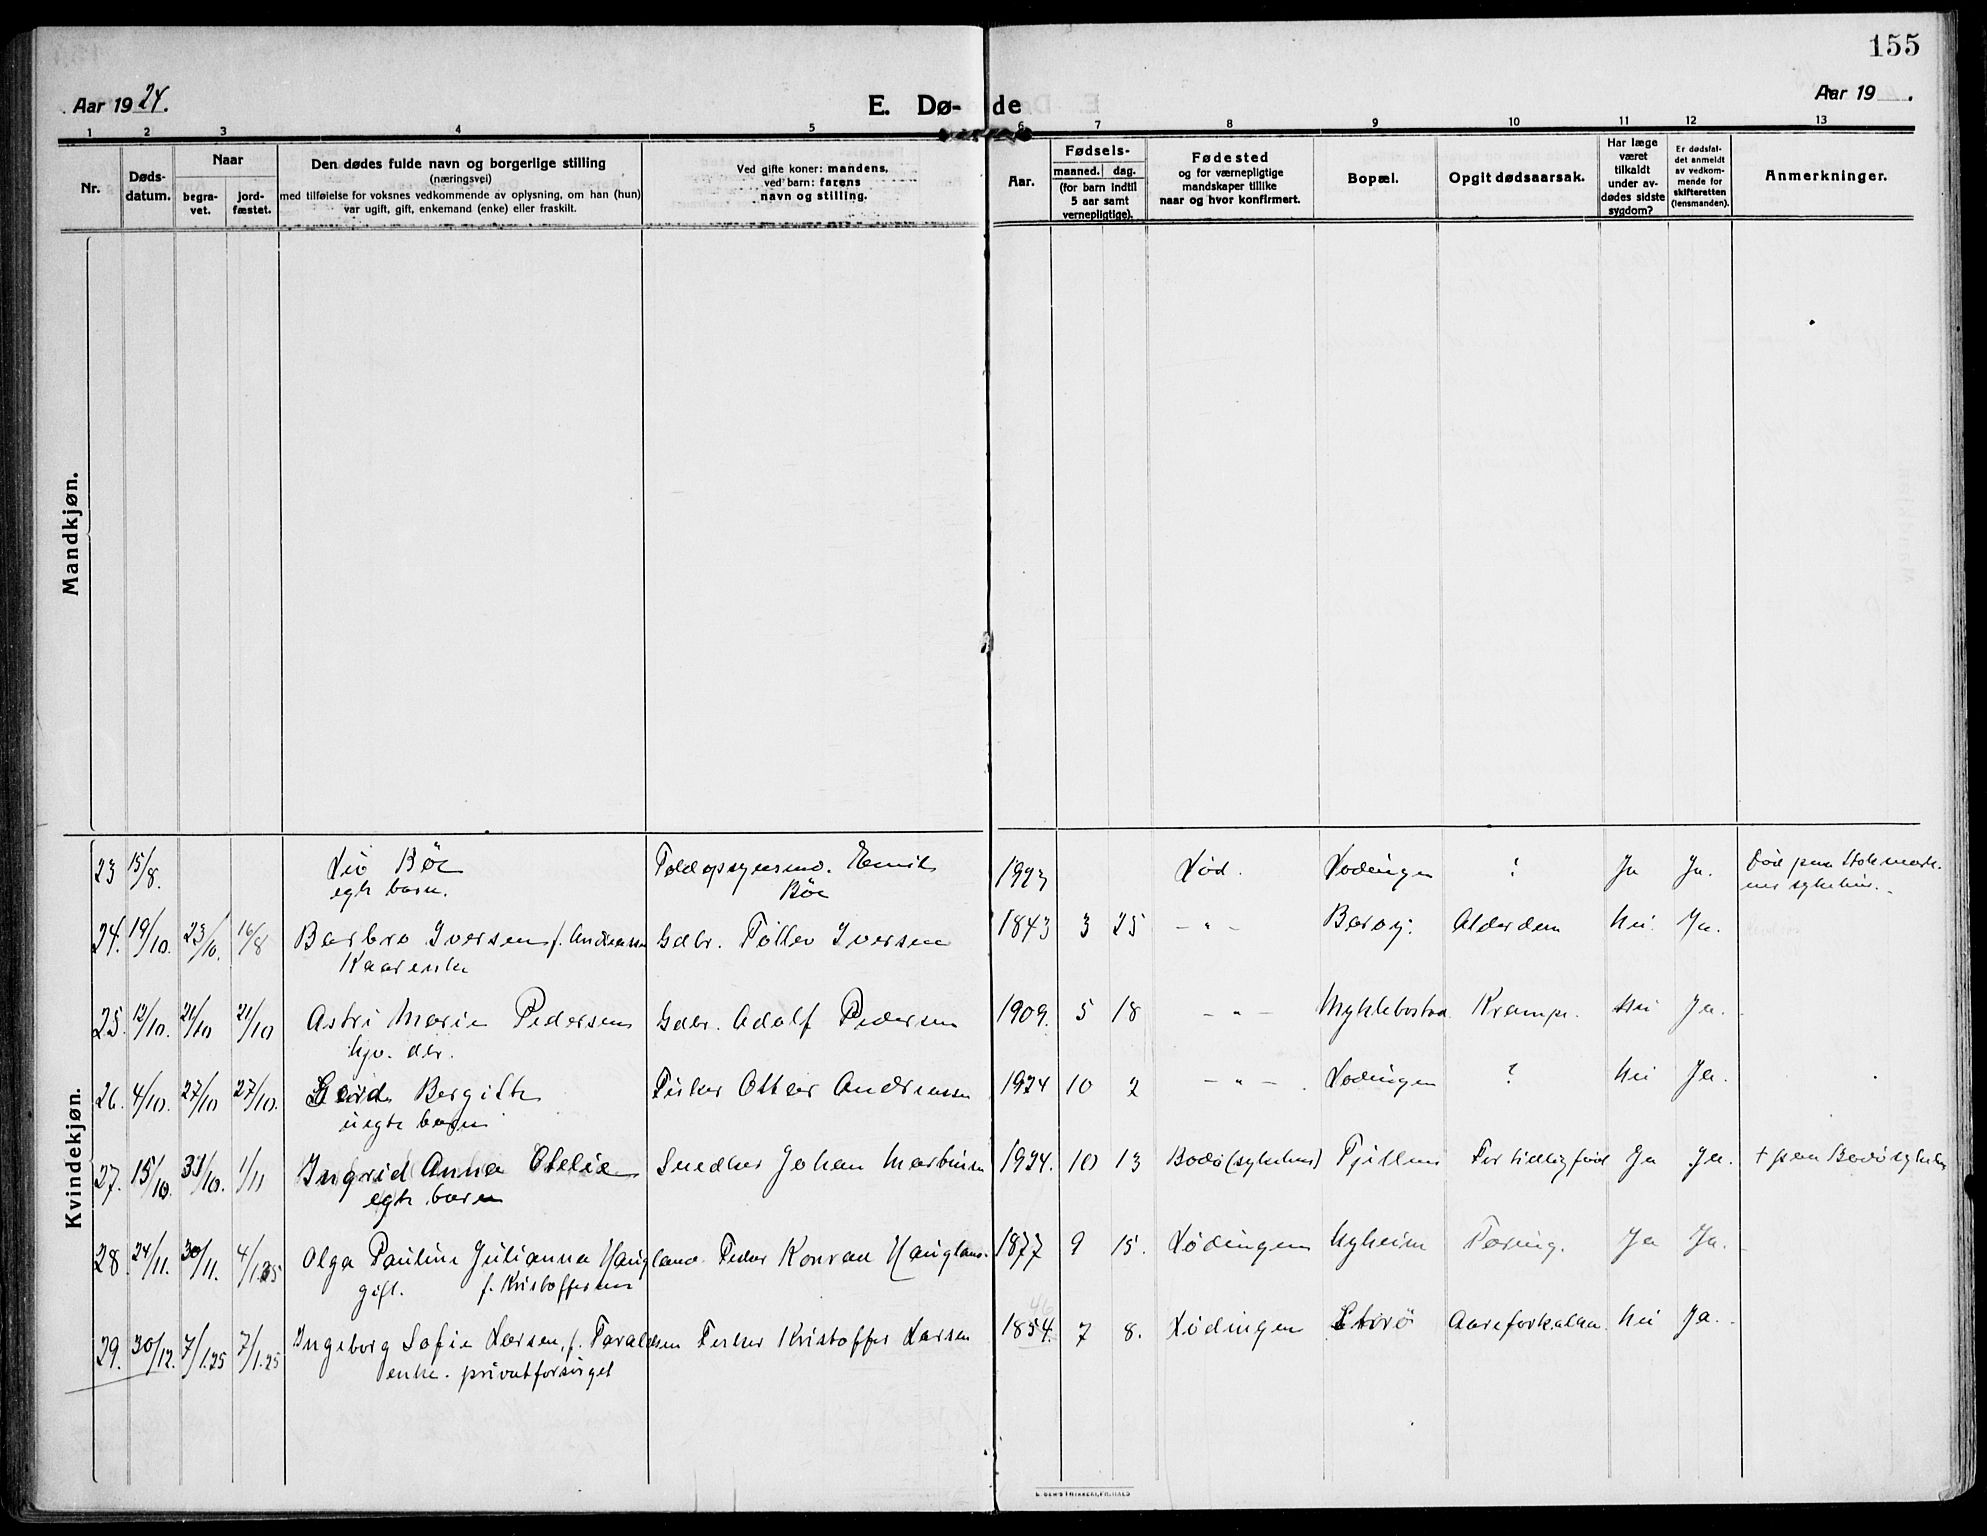 155
Aar 1924.
E. Dø- de
Aar 19 .
1 2 3 4 5 6 7 8 9 10 11 12 13
Nr.
Døds-
datum.
Naar
begra-
vet.
jord-
fæstet.
Den dødes fulde navn og borgerlige stilling
(næringsvei)
med tilføielse for voksnes vedkommende av oplysning, om han (hun)
var ugift, gift, enkemand (enke) eller fraskilt.
Ved gifte koner: mandens,
ved barn: farens
navn og stilling.
Aar.
Fødsels-
maaned. dag.
(for barn indtil
5 aar samt
vernepligtige).
Fødested
og for værnepligtige
mandskaper tillike
naar og hvor konfirmert.
Bopæl.
Opgit dødsaarsak.
Har læge
været
tilkaldt
under av-
dødes sidste
sygdom?
Er dødsfal-
det anmeldt
av vedkom-
mende for
skifteretten
(lensmanden).
Anmerkninger.
Mandkjøn.
Kvindekjøn.
23 15/8. Liv Böe Emil 1923 Lød. Lødingen ? Ja Ja. Död paa Stokmark-
egte barn. Böe nes sykehus.
24. 19/10. 23/10. 16/8 Barbro Iversen f. Andreassen Gdbr. Tollev Iversen 1843 3 25 - " - Barøy. Alderdom Nei. Ja.
Kaarenke
25. 12/10. 21/10 21/10 Astri Marie Pedersen Gdbr. Adolf Pedersen 1909. 5 18 - " - Myklebostad Krampe. Nei Ja.
hjv. dtr.
26. 4/10. 27/10 27/10. Gerd Bergitte Fisker Otter Andreassen 1924 10 2 - " - Lødingen ? Nei Ja.
uegte barn
27. 15/10. 31/10. 1/11 Ingrid Anna Otelie Snedker Johan Martinsen 1924. 10 13 Bodö (sykehus) Fjellem For tidlig född Ja Ja. + paa Bodö sykehus
egte barn
28. 24/11. 30/11. 4/1.25 Olga Pauline Julianna Haugland. Fisker Konrad Haugland. 1877 9 15. Lödingen Nyheim Tæring. Ja Ja.
gift. f. Kristoffersen
46
29. 30/12. 7/1.25 7/1.25 Ingeborg Sofie Larsen, f. Taraldsen Fisker Kristoffer Larsen 1854. 7 8. Lödingen Storö Aareforkalkn. Nei Ja.
enke. privatforsörget